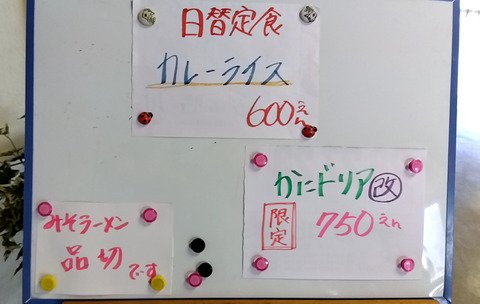 日替定食
カレーライス
600えん
かにドリア 改
限定 750えん
みそラーメン
品切です